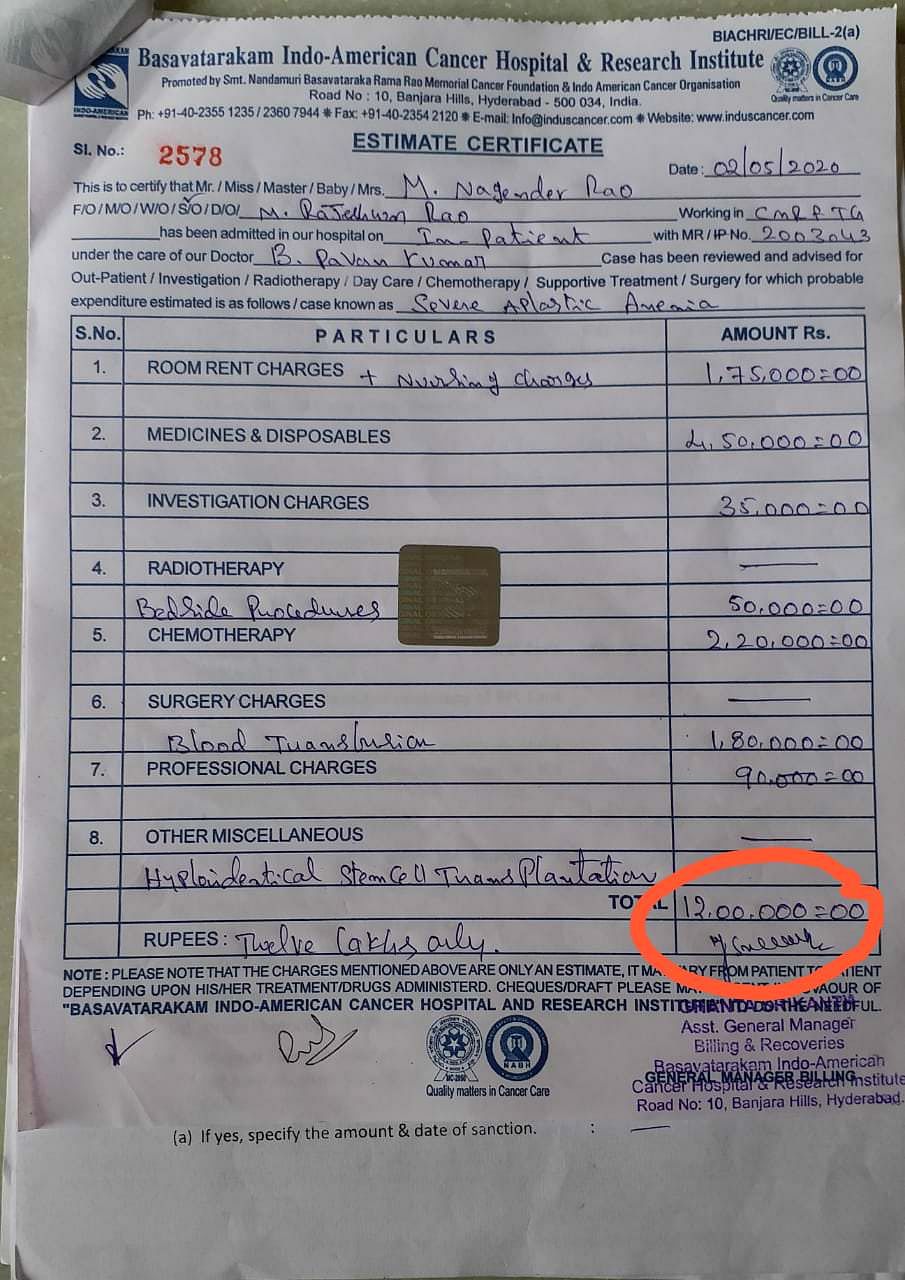 BIACHRI/EC/BILL-2(a)
Basavatarakam Indo-American Cancer Hospital & Research Institute
Promoted by Smt. Nandamuri Basavataraka Rama Rao Memorial Cancer Foundation & Indo American Cancer Organisation
Road No : 10, Banjara Hills, Hyderabad - 500 034, India.
Quality matters in Cancer Care
INDO-AMERICAN
Ph: +91-40-2355 1235 / 2360 7944 * Fax: +91-40-2354 2120 * E-mail: Info@induscancer.com * Website: www.induscancer.com
ESTIMATE CERTIFICATE
Sl. No.: 2578
Date: 02/05/2020
This is to certify that Mr. / Miss / Master / Baby / Mrs. M. Nagender Rao
F/O / M/O / W/O / S/O / D/O/ M. Rajeshwar Rao Working in CMRFTG
has been admitted in our hospital on In-patient with MR / IP No. 2003043
under the care of our Doctor B. Pavan Kumar Case has been reviewed and advised for
Out-Patient / Investigation / Radiotherapy / Day Care / Chemotherapy / Supportive Treatment / Surgery for which probable
expenditure estimated is as follows / case known as Severe Aplastic Anemia
S.No. PARTICULARS AMOUNT Rs.
1. ROOM RENT CHARGES + Nursing charges 1,75,000=00
2. MEDICINES & DISPOSABLES 4,50,000=00
3. INVESTIGATION CHARGES 35,000=00
4. RADIOTHERAPY —
Bedside Procedures 50,000=00
5. CHEMOTHERAPY 2,20,000=00
6. SURGERY CHARGES —
Blood Transfusion 1,80,000=00
7. PROFESSIONAL CHARGES 90,000=00
8. OTHER MISCELLANEOUS —
Hyploidentical Stem Cell Trans Plantation
TOTAL 12,00,000=00
RUPEES : Twelve Lakhs only.
NOTE : PLEASE NOTE THAT THE CHARGES MENTIONED ABOVE ARE ONLY AN ESTIMATE, IT MAY VARY FROM PATIENT TO PATIENT
DEPENDING UPON HIS/HER TREATMENT/DRUGS ADMINISTERD. CHEQUES/DRAFT PLEASE
"BASAVATARAKAM INDO-AMERICAN CANCER HOSPITAL AND RESEARCH INSTITUTE" AND DO THE NEEDFUL.
Asst. General Manager
Billing & Recoveries
Basavatarakam Indo-American
GENERAL MANAGER BILLING
Cancer Hospital & Research Institute
Road No: 10, Banjara Hills, Hyderabad.
NABH
Quality matters in Cancer Care
(a) If yes, specify the amount & date of sanction. : —